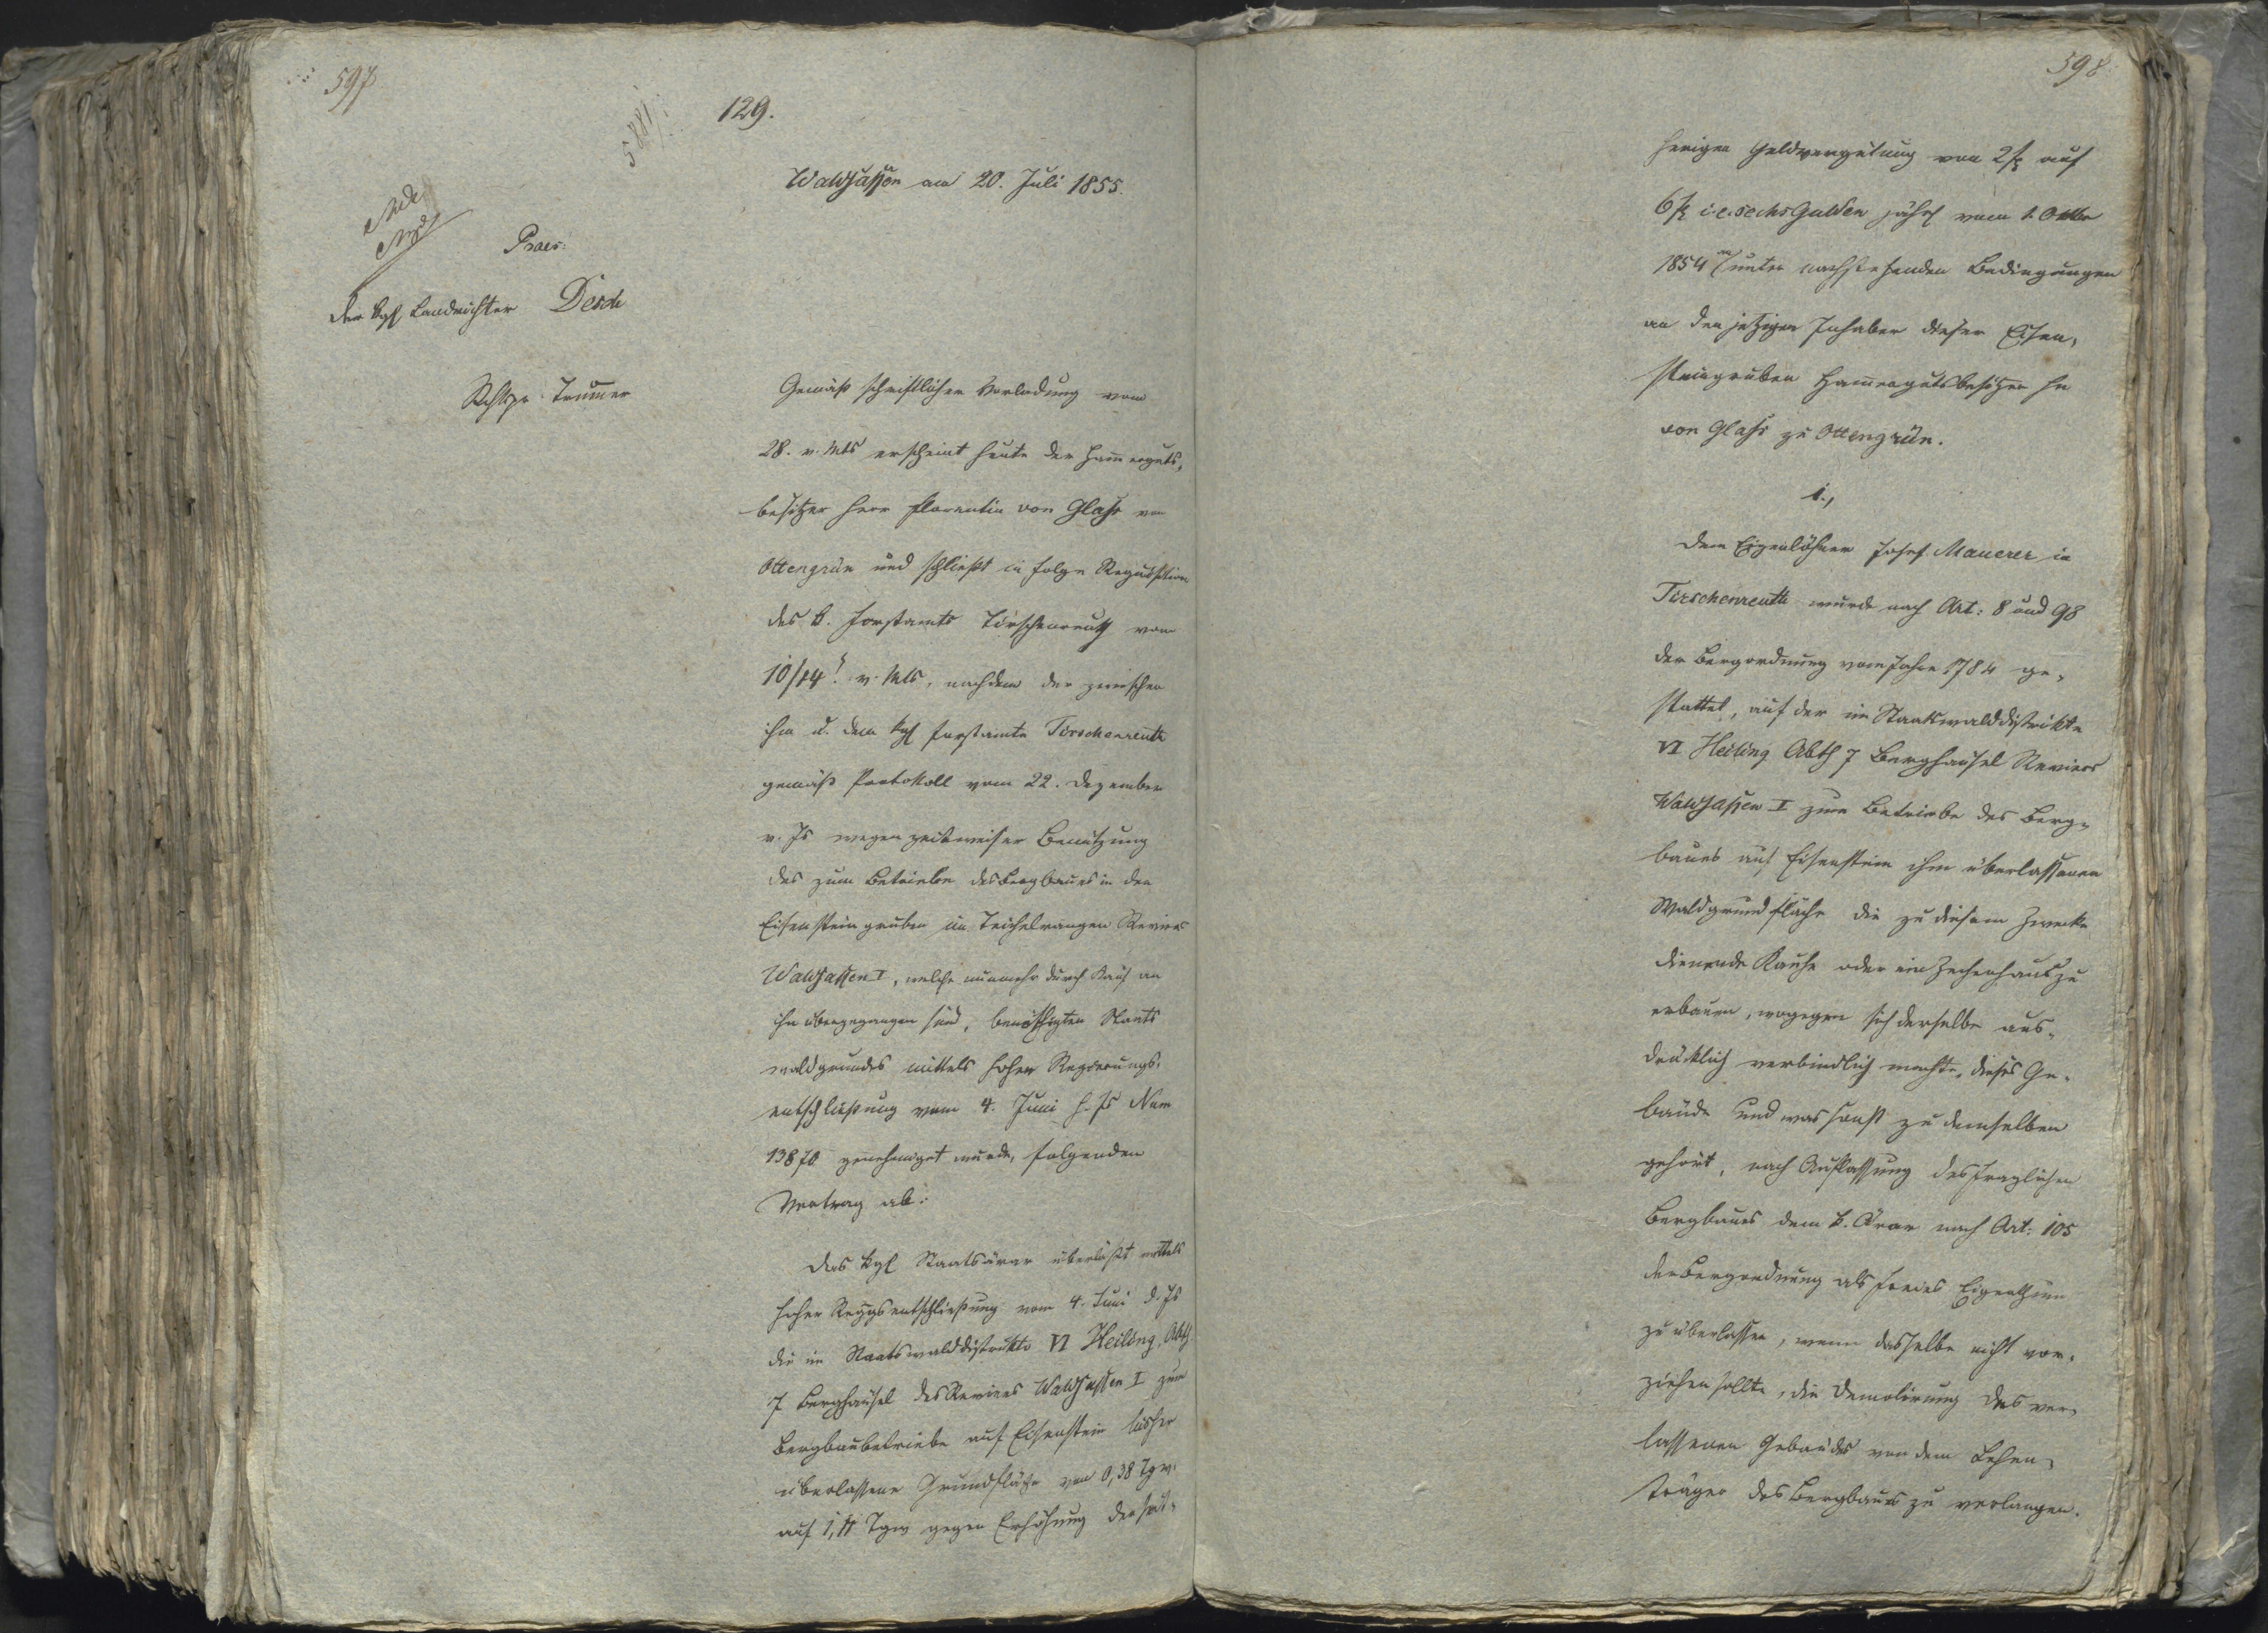 597
129.
5881
Waldsassen am 20. Juli 1855.
Praes:
der kgl Landrichter Desch
Rchtspr. Trummer
Gemäß schriftlicher Vorladung vom
28. v. Mts erscheint heute der Hammerguts-
besitzer Herr Florentin von Glass von
Ottengrün und schließt in Folge Requisition
des k. Forstamts Tirschenreuth vom
10/14. v. Mts, nachdem der zwischen
ihm u. dem kgl Forstamte Tirschenreuth
gemäß Protokoll vom 22. Dezember
v. Js wegen zeitweiser Benützung
des zum Betriebe des Bergbaues in den
Eisensteingruben im Teichelrangen Revier
Waldsassen I, welche nunmehr durch Kauf an
ihn übergegangen sind, benöthigten Staats
waldgrundes mittels hoher Regierungs-
entschließung vom 4. Juni h. Js Num
13870 genehmiget wurde, folgenden
Vertrag ab:
Das kgl Staatsärar überläßt mittels
hoher Reggsentschließung vom 4. Juni d. Js
die im Staatswalddistrikte VI Heiling, Abth
7 Berghäusel des Reviers Waldsassen I zum
Bergbaubetriebe auf Eisenstein bisher
überlassene Grundfläche von 0,38 Tgw.
auf 1,11 Tgw gegen Erhöhung der seit-
598
herigen Geldvergütung von 2 f auf
6 f i. e. sechs Gulden jährl vom 1. Oktbr
1854 an unter nachstehenden Bedingungen
an den jetzigen Inhaber dieser Eisen-
steingruben Hammergutsbesitzer Hr
von Glass zu Ottengrün.
1.,
Dem Eigenlöhner Josef Mauerer in
Tirschenreuth wurde nach Art: 8 und 98
der Bergordnung vom Jahre 1784 ge-
stattet, auf der im Staatswalddistrikte
VI Heiling Abth 7 Berghäusel Reviers
Waldsassen I zum Betriebe des Berg-
baues auf Eisenstein ihm überlassenen
Waldgrundfläche die zu diesem Zwecke
dienende Kauhe oder ein Zechenhaus zu
erbauen, wogegen sich derselbe aus-
drücklich verbindlich machte, dieses Ge-
bäude und was sonst zu demselben
gehört, nach Auflassung des fraglichen
Bergbaues dem k. Ärar nach Art: 105
der Bergordnung als freies Eigenthum
zu überlassen, wenn dasselbe nicht vor-
ziehen sollte, die Demolirung des ver-
lassenen Gebäudes von dem Lehen-
träger des Bergbaues zu verlangen.